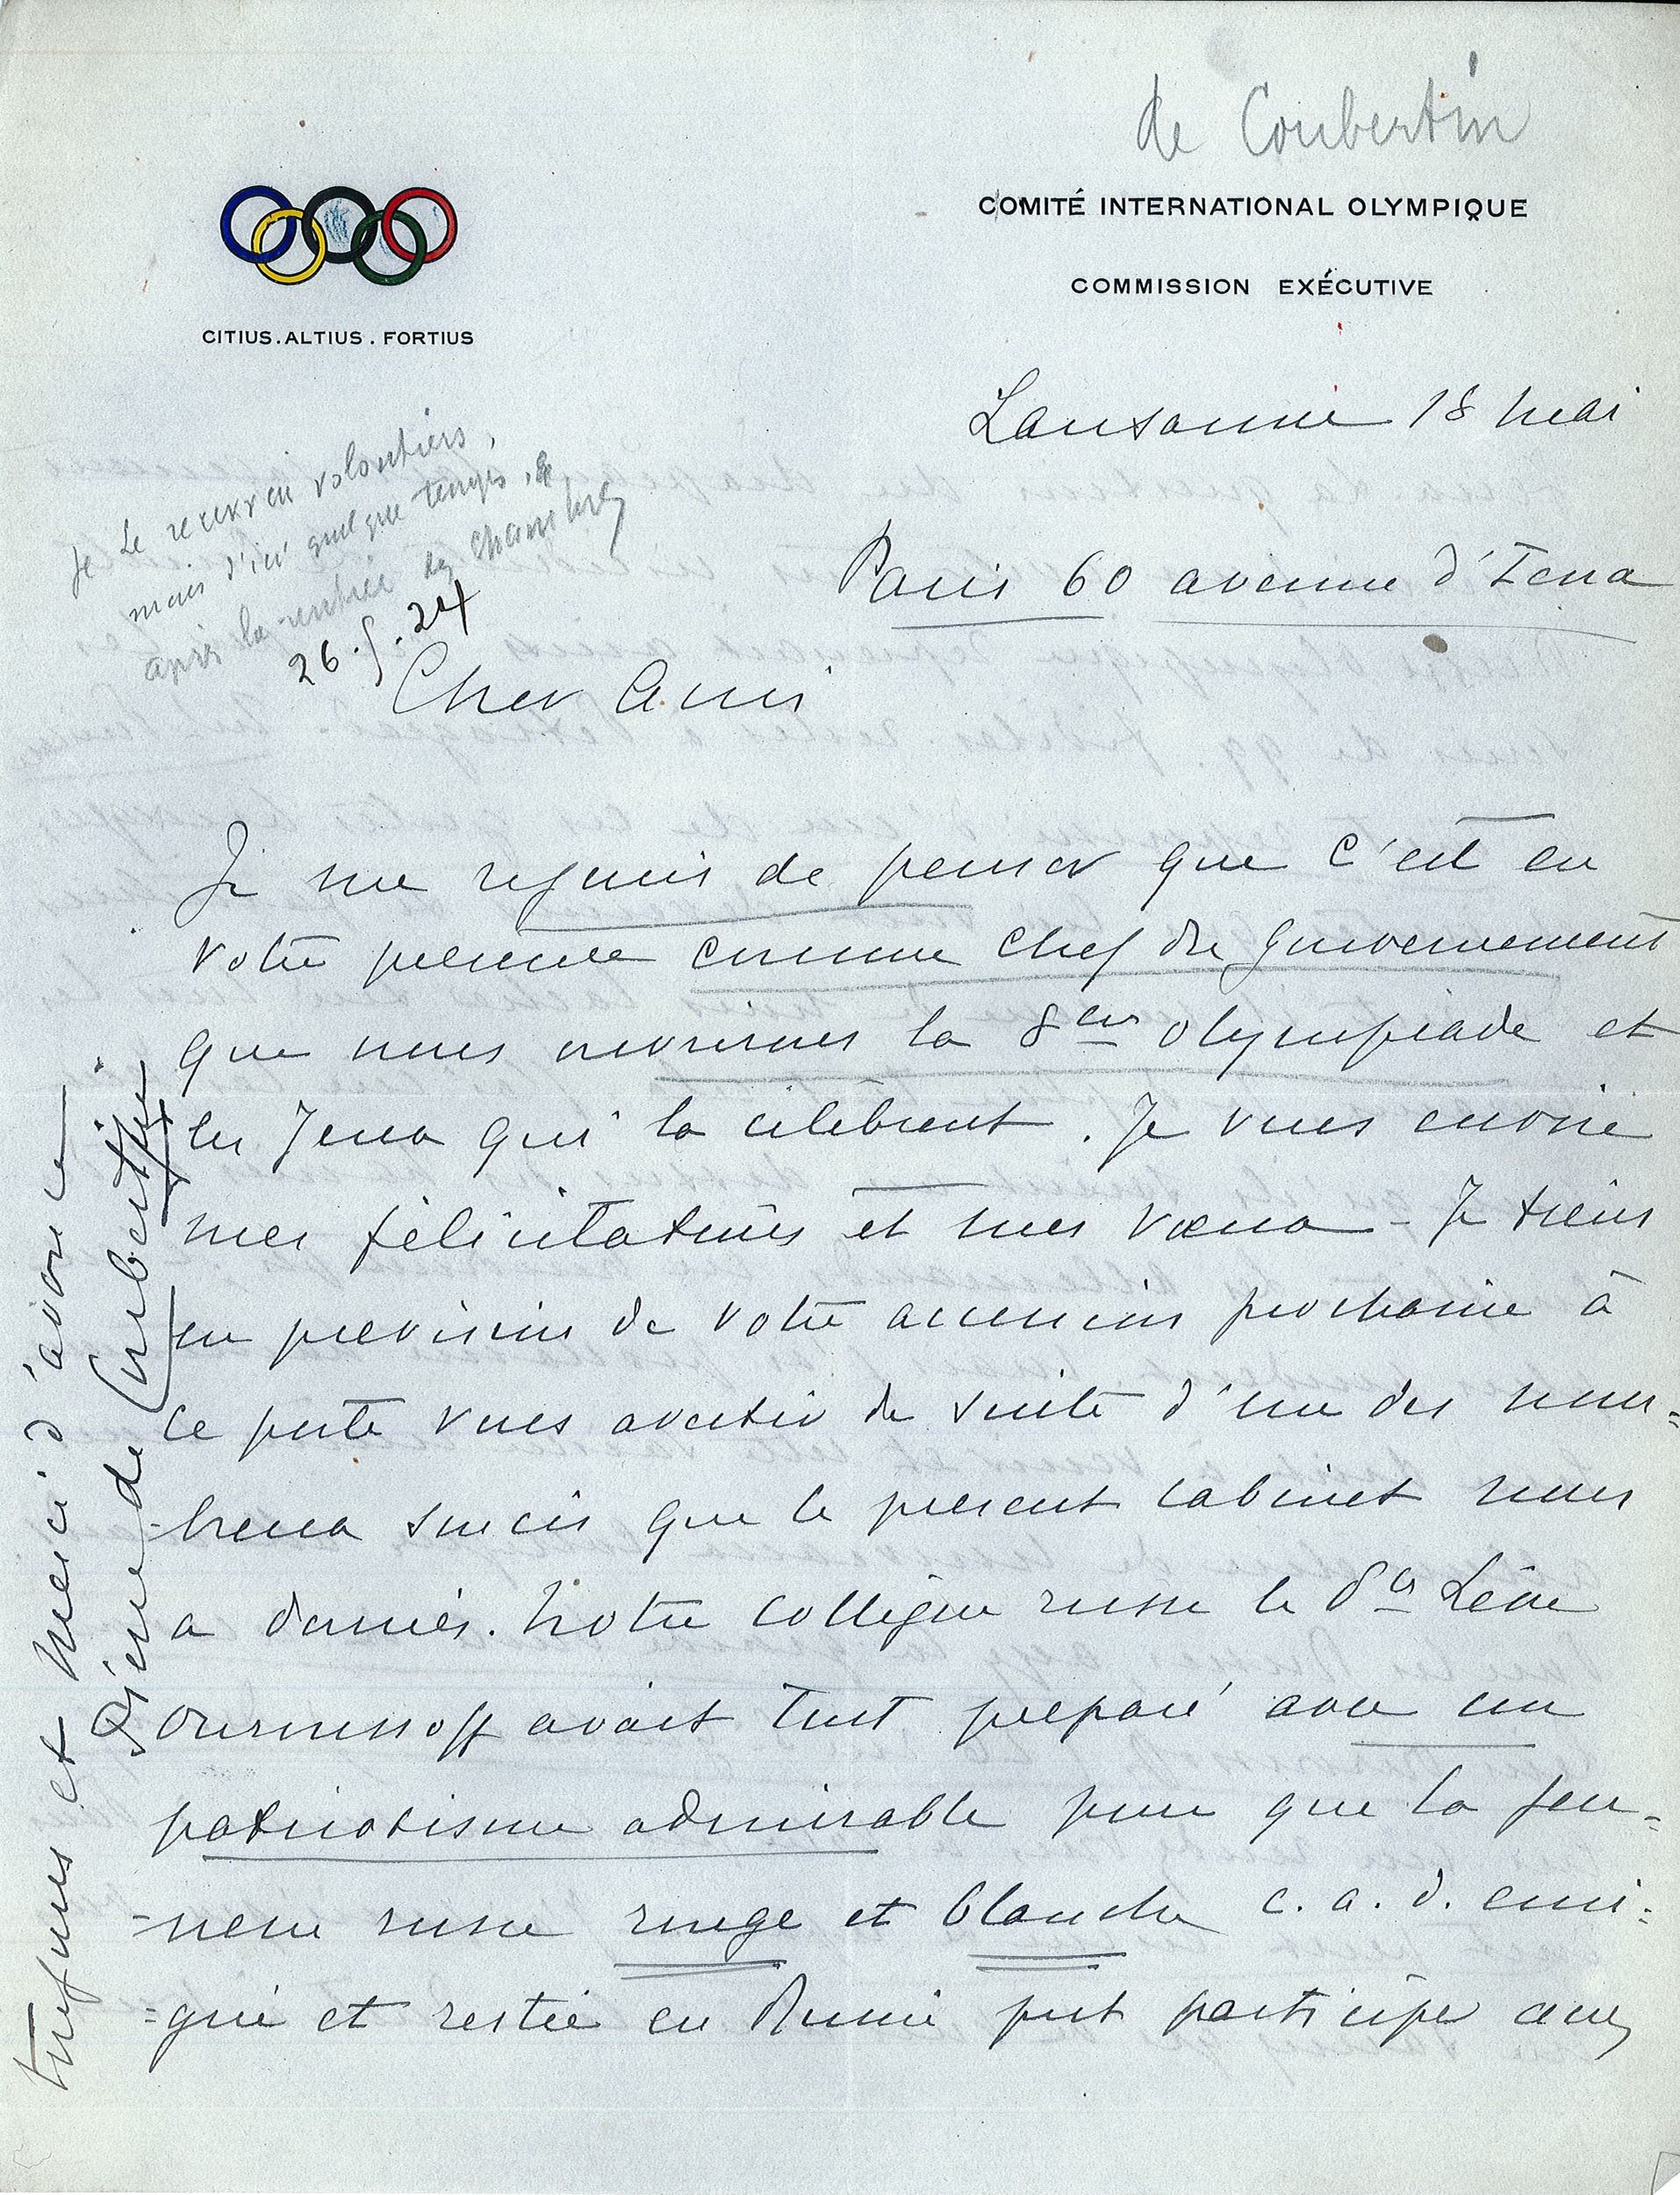 de Coubertin
COMITÉ INTERNATIONAL OLYMPIQUE
COMMISSION EXÉCUTIVE
CITIUS.ALTIUS.FORTIUS
Lausanne 18 mai
Paris 60 avenue d'Iena
Je le recevrai volontiers,
mais d'ici quelque temps,
après la rentrée des Chambres
26.5.24
Cher Ami
Je me rejouis de penser que c'est en
votre présence comme chef du gouvernement
que nous ouvrirons la 8em olympiade et
les Jeux qui la célèbrent. Je vous envoie
mes félicitations et mes vœux - Je tiens
en prevision de votre accession prochaine à
ce poste vous avertir de suite d'un des nom=
=breux soucis que le present cabinet nous
a donnés. Notre collègue russe le Pce Léon
Ouroussoff avait tout préparé avec un
patriotisme admirable pour que la jeu=
=nesse russe rouge et blanche c.a.d. emi=
=grée et restée en Russie put participer aux
toujours et merci d'avance
Pierre de Coubertin